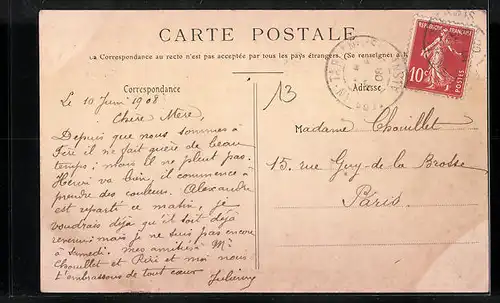 CARTE POSTALE
La Correspondance au recto n'est pas acceptée par tous les pays étrangers. (Se renseigner à
Correspondance
Adresse
RÉPUBLIQUE FRANÇAISE
10c
POSTES
13
Le 10 Juin 1908
Chère Mère,
Depuis que nous sommes à
il ne fait guère de beau
temps; mais il ne pleut pas.
Henri va bien, il commence à
prendre des couleurs. Alexandre
est reparti ce matin, je
voudrais déjà qu'il soit déjà
revenu mais je ne suis pas encore
à Samedi. mes amitiés à Mr
Chouillet et et moi nous
t'embrassons de tout coeur
Madame Chouillet
15, rue Guy-de la Brosse
Paris